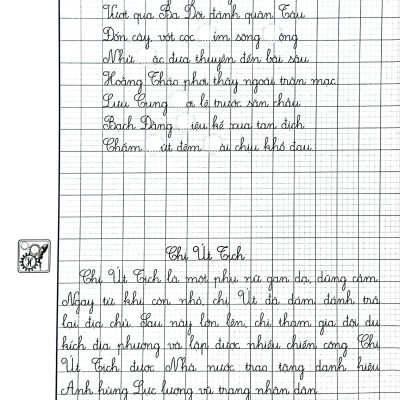 Vượt qua Ba Dội đánh quân Tàu
Đốn cây vót cọc im sông ông
Như ác đưa thuyền đến bãi sâu
Hoằng Tháo phơi thây ngoài trận mạc
Lưu Cung ơi lê trước sân chầu
Bạch Đằng iêu kế xua tan địch
Chấm út đêm ài chịu khổ đau
Chị Út Tịch
Chị Út Tịch là một phụ nữ gan dạ, dũng cảm.
Ngay từ khi còn nhỏ, chị Út đã dám đánh trả
lại địa chủ. Sau này lớn lên, chị tham gia đội du
kích địa phương và lập được nhiều chiến công. Chị
Út Tịch được Nhà nước trao tặng danh hiệu
Anh hùng Lực lượng vũ trang nhân dân.